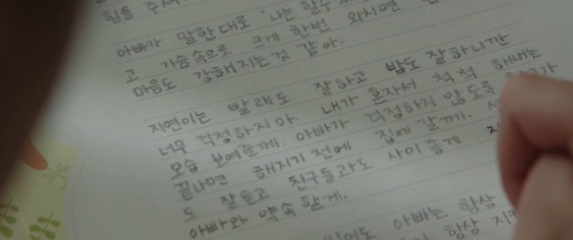 힘들 수
아빠가 말한대로 '나는 할수
고 가슴속으로 크게 한번 외치면
마음도 강해지는것 같아.
지연이는 빨래도 잘하고 밥도 잘하니깐
너무 걱정하지마. 내가 혼자서 척척 해내는
모습 보여줄께. 아빠가 걱정하지 않도록
끝나면 해지기 전에 집에 갈께.
도 잘듣고 친구들과도 사이 좋게
아빠와 약속할게.
아빠는 항상
항상